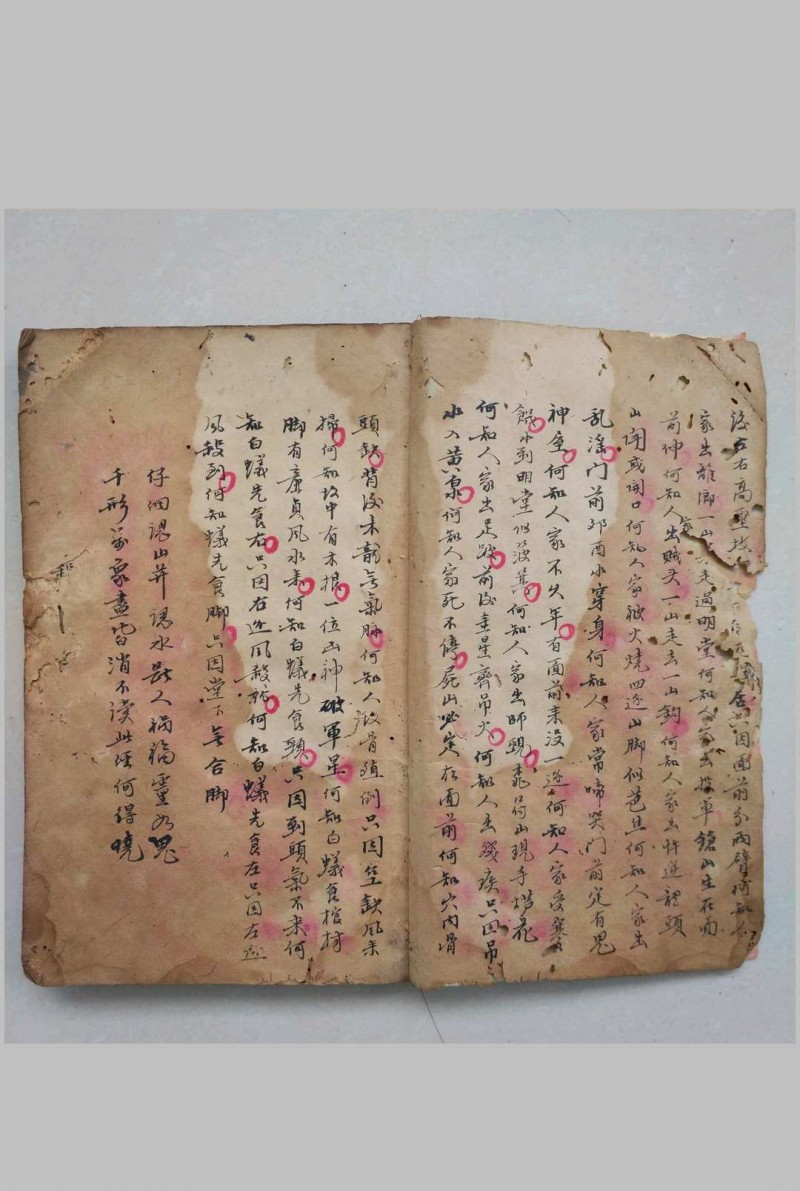 後左右高壓坟只因面前分兩臂何知人
家出離鄉一山走過明堂何知人家出投軍鎗山生在面
前伸何知人家出賊夫一山走去一山鈎何知人家出忤逆龍頭
山閗或開口何知人家被火燒四边山脚似芭蕉何知人家出
乱滛門前邜酉水穿身何知人家常啼哭門前定有鬼
神屋何知人家不久年有面前来没一边何知人家受窮
餓水到明堂似簸箕何知人家出師覡面前山現手㨪花
何知人家出足跛前後金星齊吊火何知人出殘疾只因吊
水入黃泉何知人家死不停屍山必定在面前何知穴内骨
頭缺背後未龍無氣脉何知人改骨殖倒只因空缺風来
掃何知坟中有木根一位凶神破軍星何知白蟻食棺材
脚有亷貞風水来何知白蟻先食頭只因到頭氣不来何
知白蟻先食右只因右边風殺就何知白蟻先食左只因左边
風殺到何知蟻先食脚只因堂下無合脚
仔细認山并認水是人禍福靈如鬼
千形萬象盡皆消不讀此經何得曉